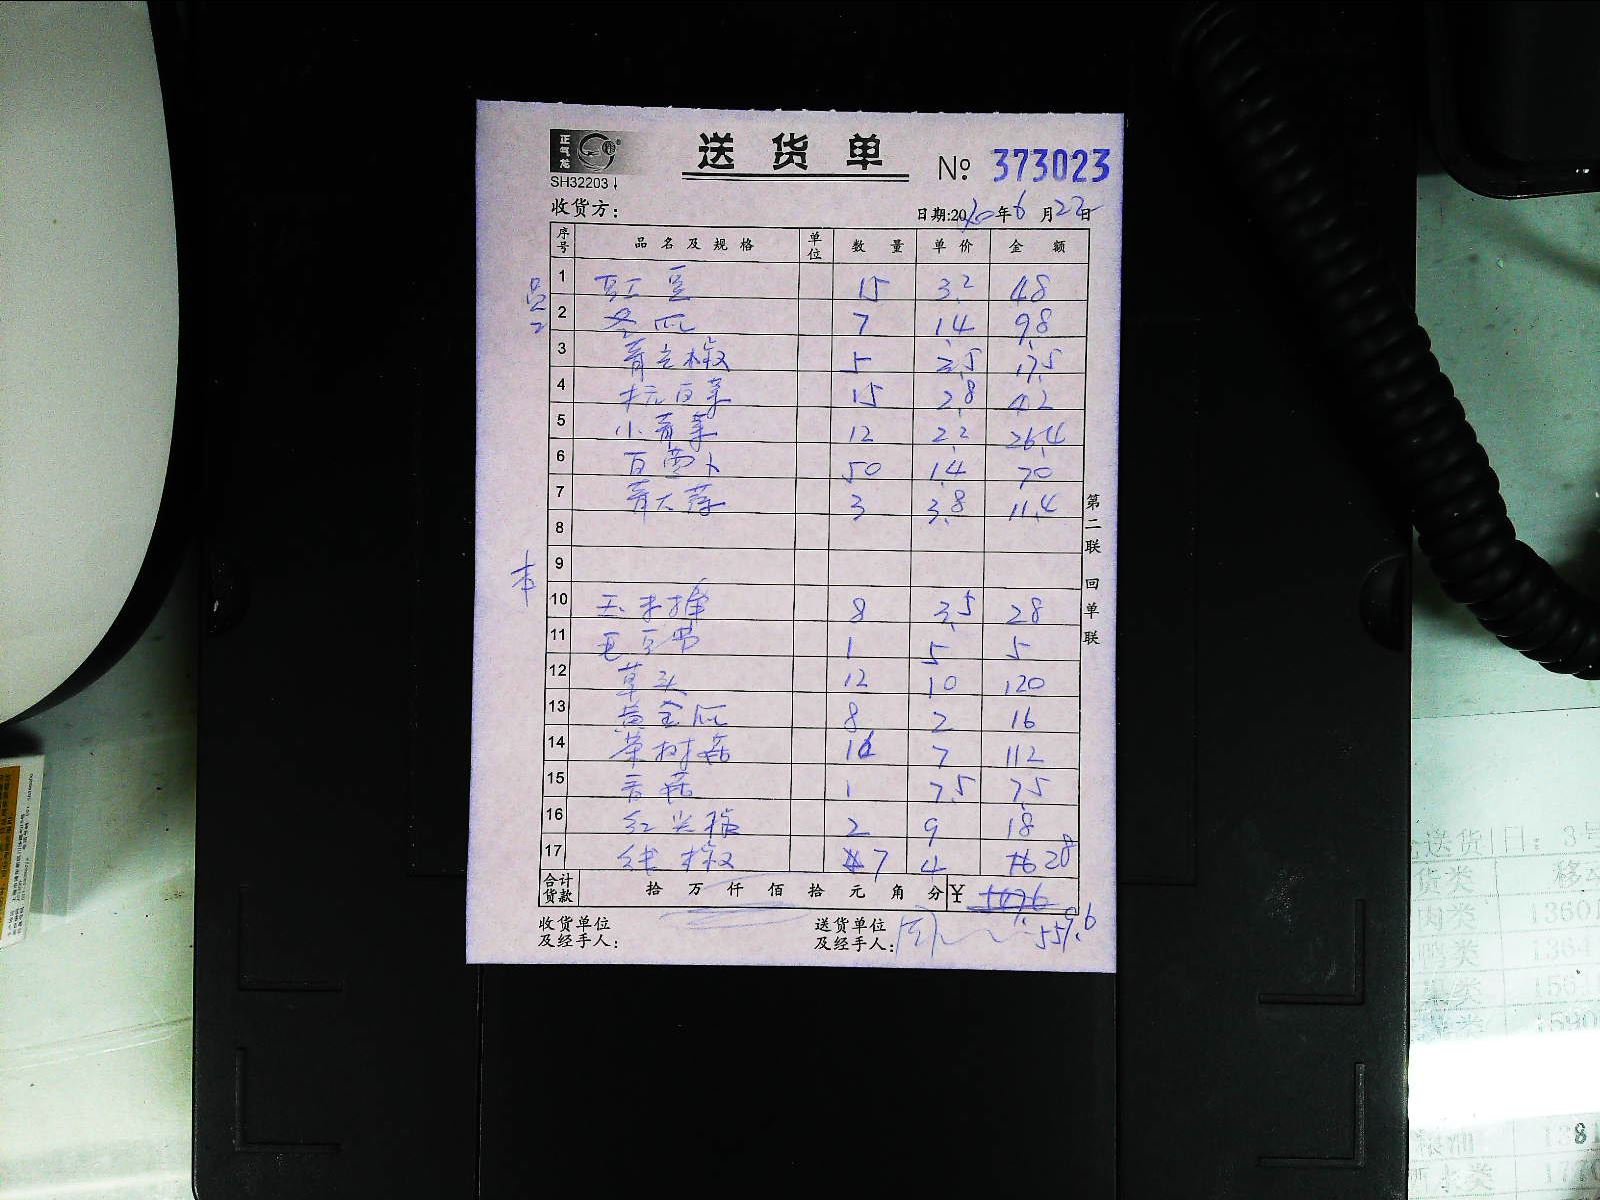 正气龙
送货单
№ 373023
SH32203
收货方:
日期:2020年6月22日
序号 品名及规格 单位 数量 单价 金额
员工
1 豇豆 15 3.2 48
2 冬瓜 7 1.4 9.8
3 青尖椒 5 3.5 17.5
4 杭白菜 15 2.8 42
5 小青菜 12 2.2 26.4
6 白萝卜 50 1.4 70
7 青大蒜 3 3.8 11.4
8
9
本
10 玉米棒 8 3.5 28
11 毛豆节 1 5 5
12 草头 12 10 120
13 黄金瓜 8 2 16
14 茶树菇 16 7 112
15 香菇 1 7.5 7.5
16 红尖椒 2 9 18
17 线椒 7 4 28
合计货款 拾万仟佰拾元角分 ¥
559.6
收货单位及经手人:
送货单位及经手人: 周
第二联 回单联
送货日: 3号
货类 移动
肉类 13601
鸭类 1364